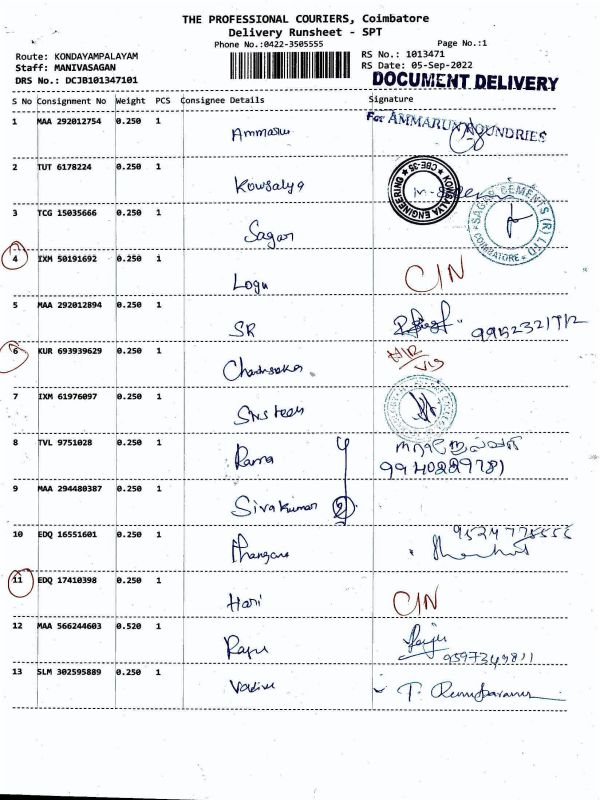 THE PROFESSIONAL COURIERS, Coimbatore
Delivery Runsheet - SPT
Phone No.:0422-3505555
Page No.:1
Route: KONDAYAMPALAYAM
RS No.: 1013471
Staff: MANIVASAGAN
RS Date: 05-Sep-2022
DRS No.: DCJB101347101
DOCUMENT DELIVERY
S No Consignment No Weight PCS Consignee Details Signature
1 MAA 292012754 0.250 1 Ammarux For AMMARUX FOUNDRIES
2 TUT 6178224 0.250 1 Kowsalya KOWSALYA ENGINEERING CBE-35
3 TCG 15035666 0.250 1 Sagar SAGAR CEMENTS (R) LTD COIMBATORE
4 IXM 50191692 0.250 1 Logu C/N
5 MAA 292012894 0.250 1 SR
6 KUR 693939629 0.250 1
7 IXM 61976097 0.250 1
8 TVL 9751028 0.250 1 Rama
9 MAA 294480387 0.250 1 Sivakumar 2
10 EDQ 16551601 0.250 1
11 EDQ 17410398 0.250 1 Hari C/N
12 MAA 566244603 0.520 1 Raju Raju
9597349811
13 SLM 302595889 0.250 1 Vadivu